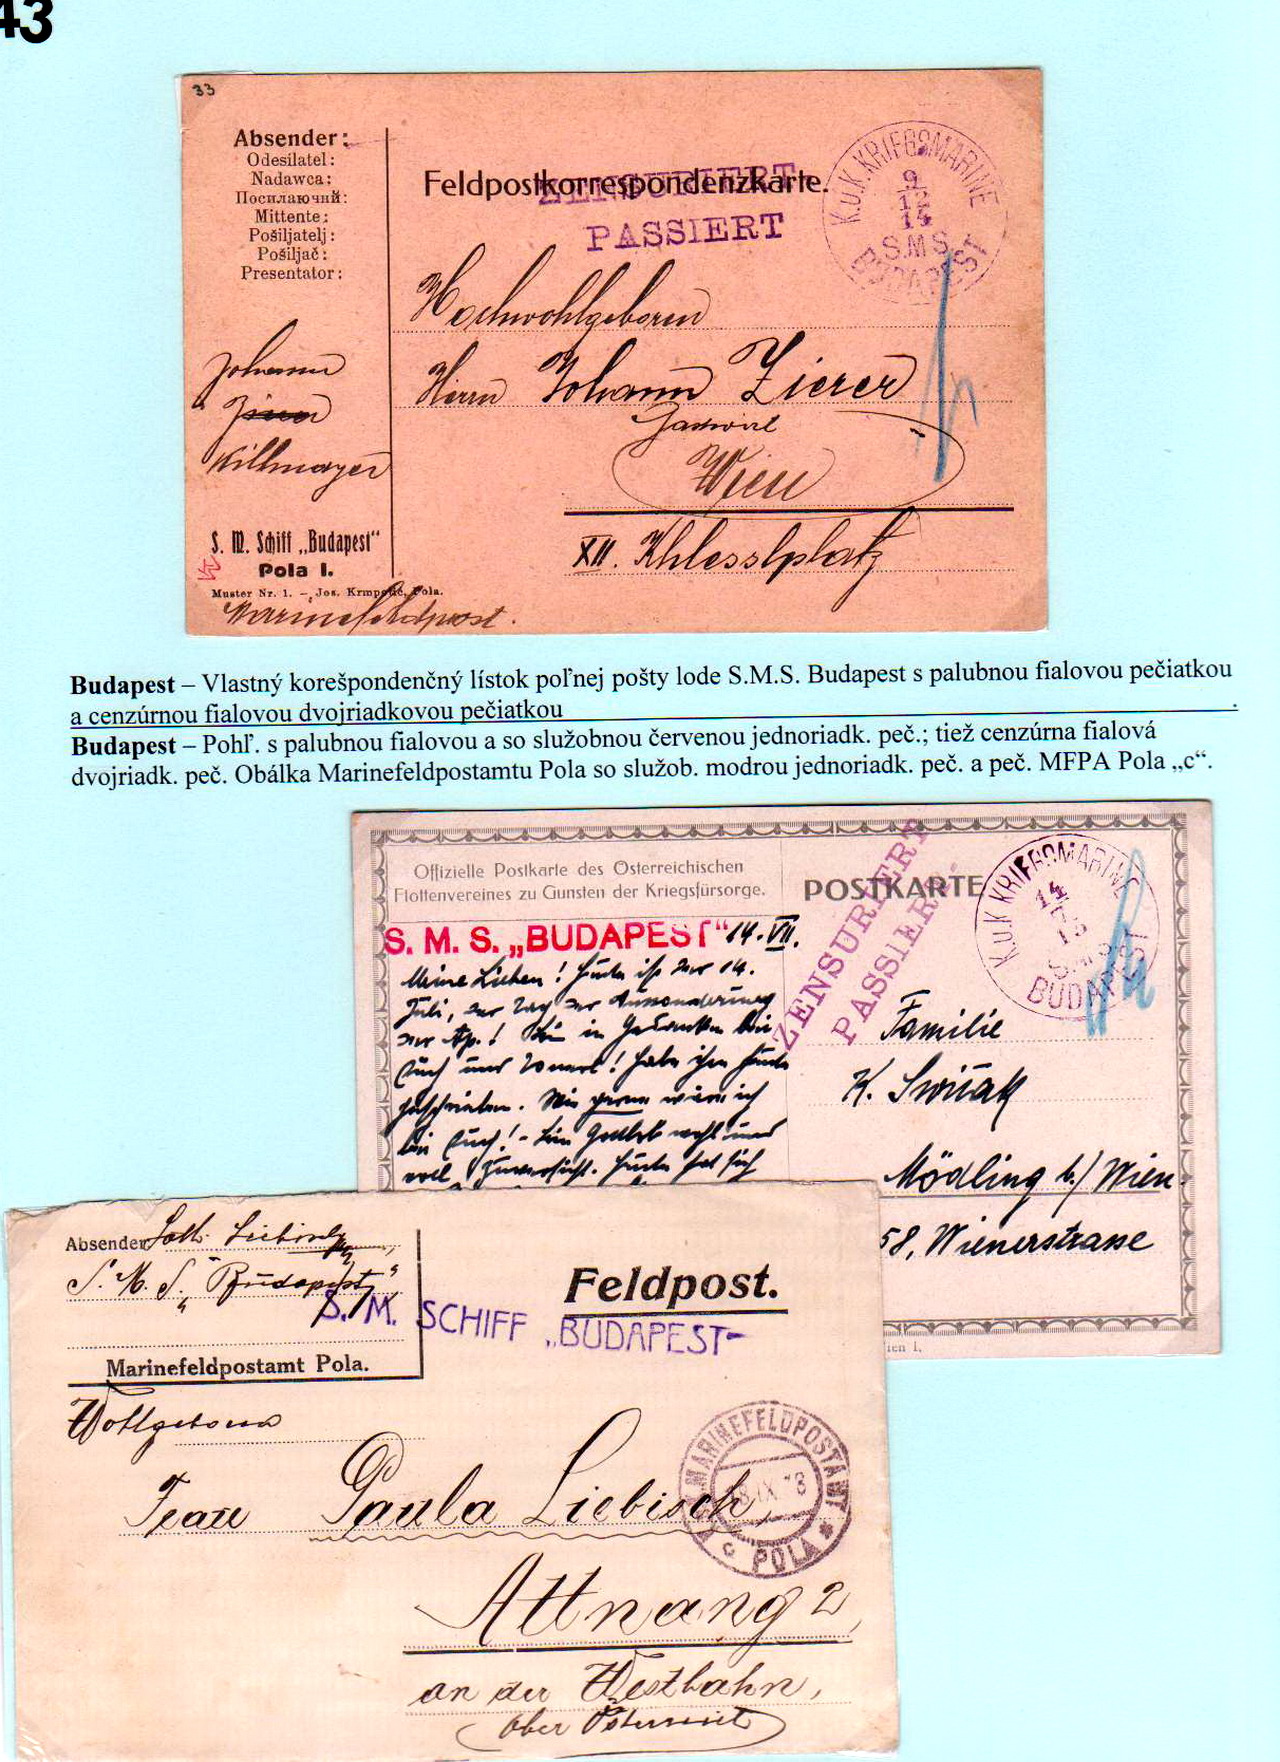 43
33
Absender:
Odesílatel:
Nadawca:
Посилаючий:
Mittente:
Pošiljatelj:
Pošiljač:
Presentator:
Feldpostkorrespondenzkarte.
ZENSURIERT
PASSIERT
K.u.K. KRIEGSMARINE
9
12
14
S.M.S.
BUDAPEST
Hochwohlgeboren
Herrn Johann Zierer
Gastwirt
Wien
XII. Khlesslplatz
Johann
Killmayer
S. M. Schiff „Budapest“
Pola I.
Muster Nr. 1. – Jos. Krmpotić, Pola.
Marinefeldpost.
Budapest – Vlastný korešpondenčný lístok poľnej pošty lode S.M.S. Budapest s palubnou fialovou pečiatkou
a cenzúrnou fialovou dvojriadkovou pečiatkou.
Budapest – Pohľ. s palubnou fialovou a so služobnou červenou jednoriadk. peč.; tiež cenzúrna fialová
dvojriadk. peč. Obálka Marinefeldpostamtu Pola so služob. modrou jednoriadk. peč. a peč. MFPA Pola „c“.
Offizielle Postkarte des Österreichischen
Flottenvereines zu Gunsten der Kriegsfürsorge.
POSTKARTE
ZENSURIERT
PASSIERT
K.u.K. KRIEGSMARINE
14
S.M.S.
BUDAPEST
S. M. S. „BUDAPEST“ 14. VII.
Meine Lieben! Heute ist der 14.
Juli, der Tag der
in Gedanken bei
Euch und
geschrieben. Wie gerne wäre ich
bei Euch! - Bin Gottlob wohl und
voll Zuversicht. Heute hat sich
Familie
K.
Mödling b/ Wien.
58, Wienerstrasse
ien I.
Absender
S. M. S. „Budapest“
S. M. SCHIFF „BUDAPEST“
Feldpost.
Marinefeldpostamt Pola.
Wohlgeboren
Frau Paula Liebisch,
K.u.K. MARINEFELDPOSTAMT
IX 18
c POLA *
Attnang 2,
an der Westbahn,
Ober Österreich